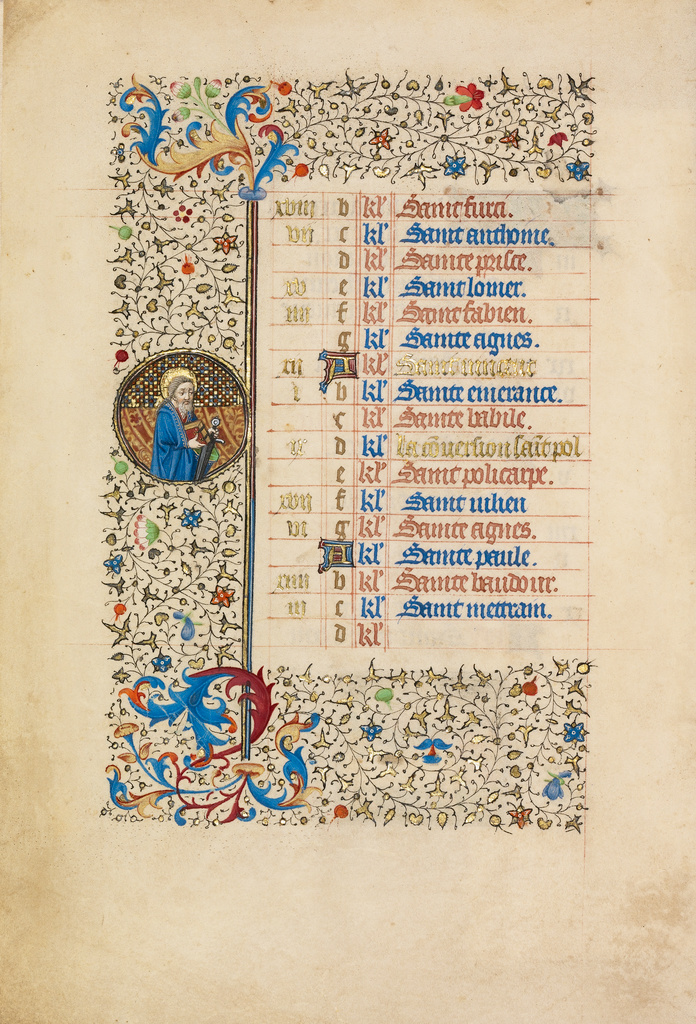 xviij b kl' Saint furci.
vij c kl' Saint anthoine.
d kl' Sainte prisce.
xv e kl' Saint lomer.
iiij f kl' Saint fabien.
g kl' Sainte agnes.
xij A kl' Saint vincent
i b kl' Sainte emerance.
c kl' Sainte babile.
ix d kl' la conversion saint pol
e kl' Saint policarpe.
xvij f kl' Saint iulien
vi g kl' Sainte agnes.
A kl' Sainte paule.
xiiij b kl' Sainte baudour.
iij c kl' Saint metram.
d kl'